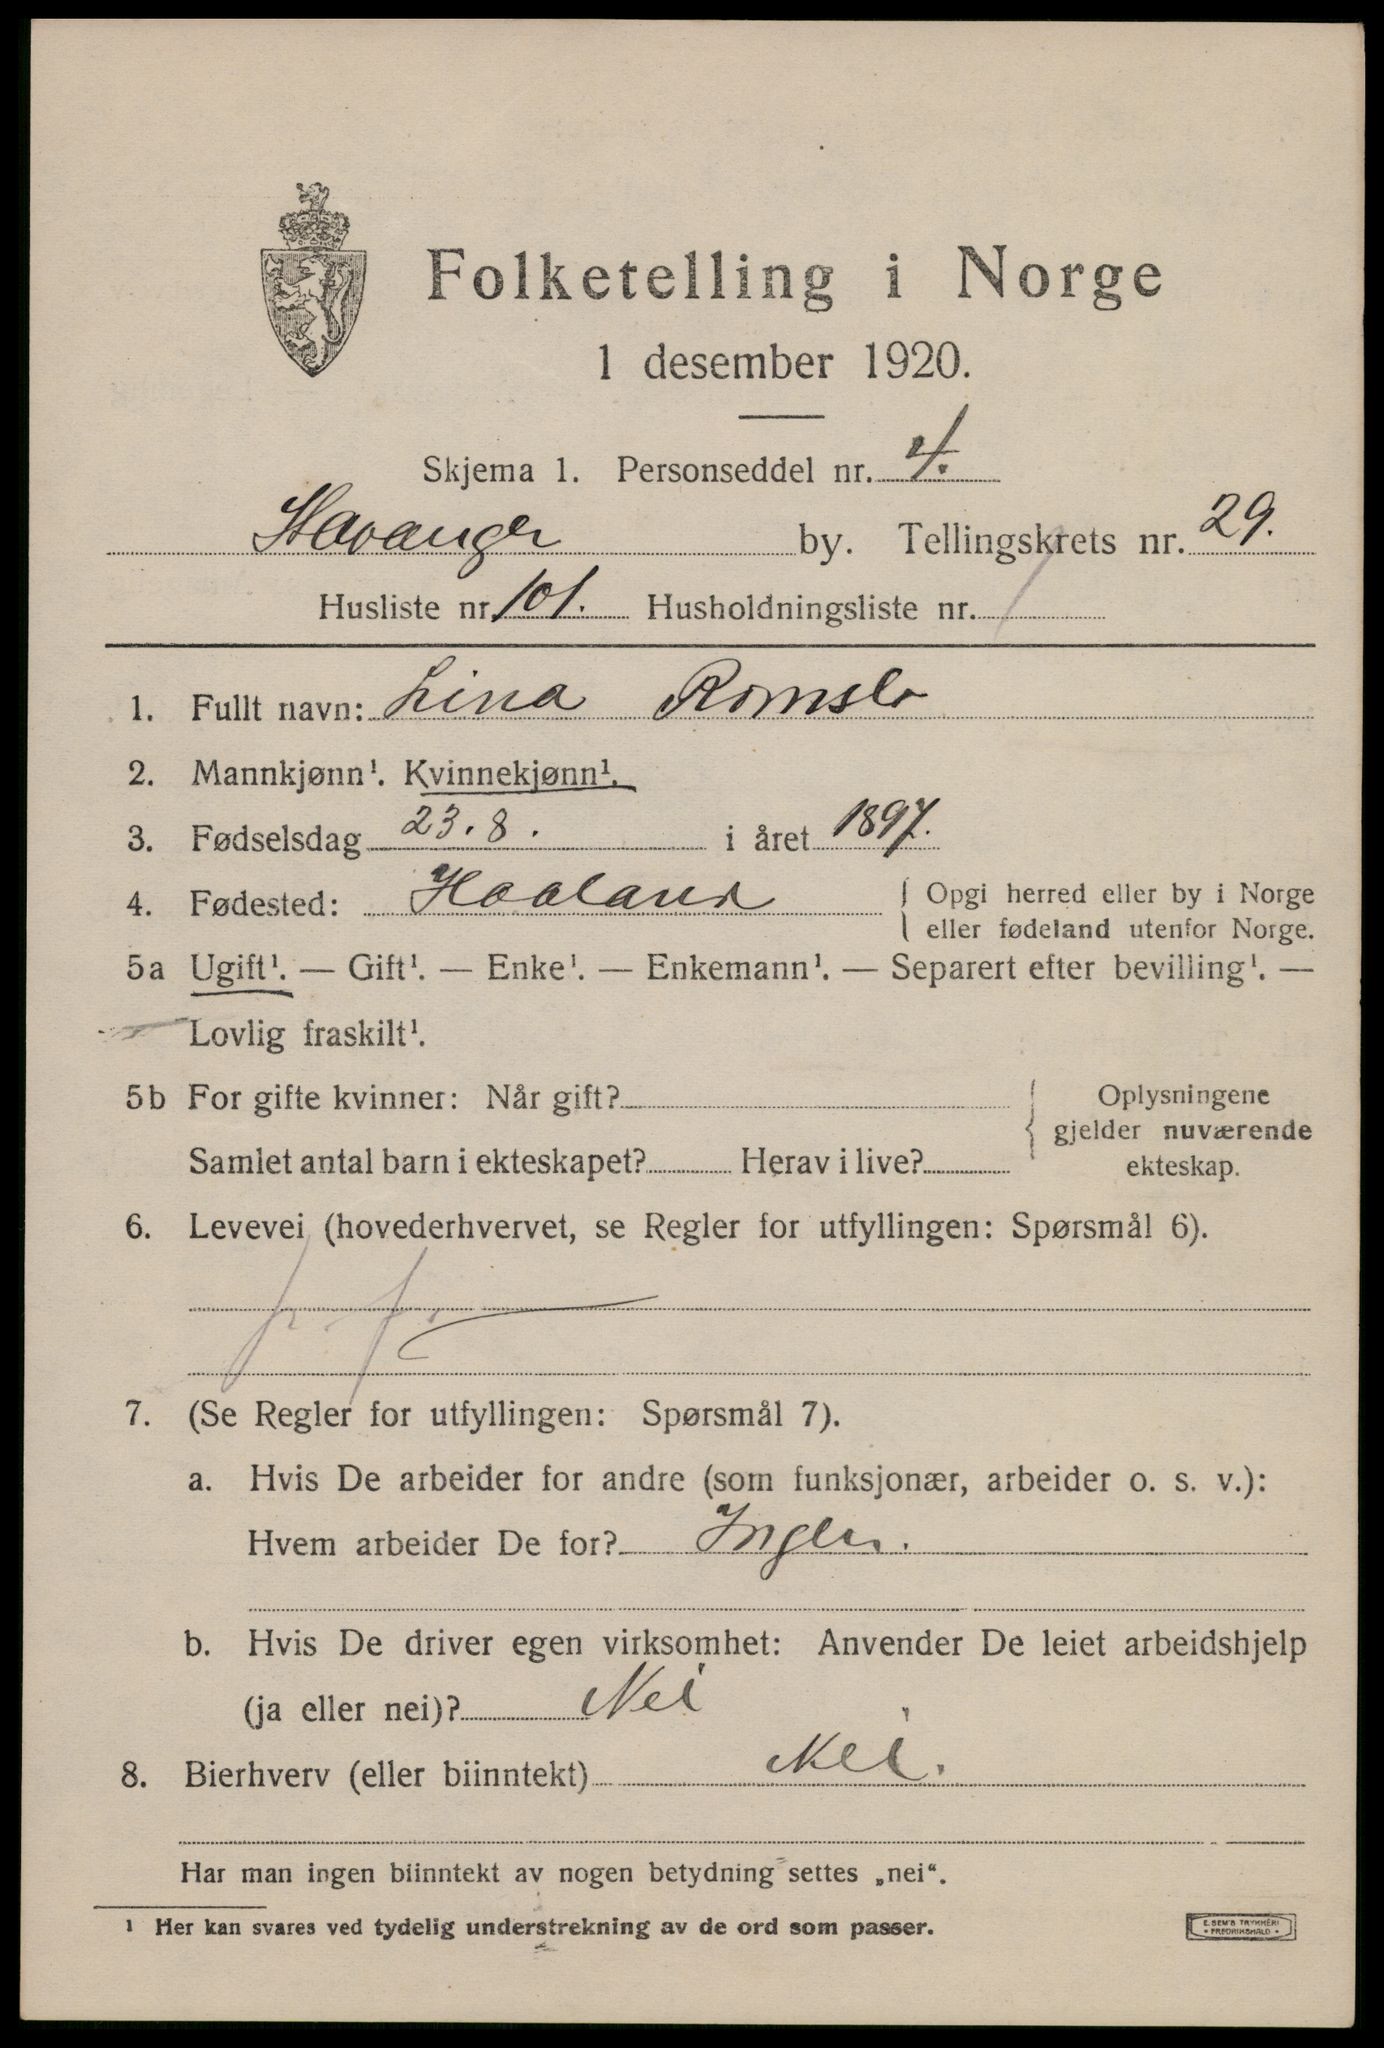 Folketelling i Norge
1 desember 1920.
Skjema 1. Personseddel nr. 4.
Stavanger by. Tellingskrets nr. 29.
Husliste nr. 101. Husholdningsliste nr. 1
1. Fullt navn: Lina Romslo
2. Mannkjønn¹. Kvinnekjønn¹.
3. Fødselsdag 23.8. i året 1897.
4. Fødested: Haaland { Opgi herred eller by i Norge
eller fødeland utenfor Norge.
5a Ugift¹. — Gift¹. — Enke¹. — Enkemann¹. — Separert efter bevilling¹. —
Lovlig fraskilt¹.
5b For gifte kvinner: Når gift? { Oplysningene
gjelder nuværende
Samlet antal barn i ekteskapet? Herav i live? ekteskap.
6. Levevei (hovederhvervet, se Regler for utfyllingen: Spørsmål 6).
7. (Se Regler for utfyllingen: Spørsmål 7).
a. Hvis De arbeider for andre (som funksjonær, arbeider o. s. v.):
Hvem arbeider De for? Ingen.
b. Hvis De driver egen virksomhet: Anvender De leiet arbeidshjelp
(ja eller nei)? Nei
8. Bierhverv (eller biinntekt) Nei.
Har man ingen biinntekt av nogen betydning settes „nei“.
¹ Her kan svares ved tydelig understrekning av de ord som passer.
E. SEM'S TRYKKERI
• FREDRIKSHALD •